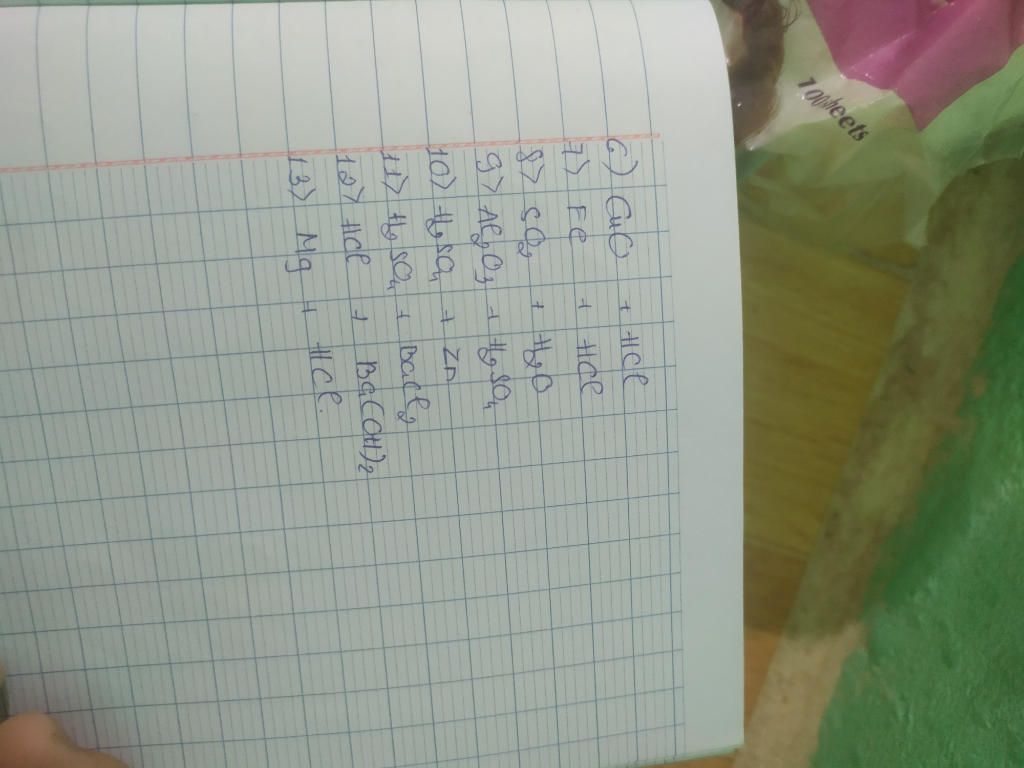 6) CuO + HCl
7) Fe + HCl
8) SO₂ + H₂O
9) Al₂O₃ + H₂SO₄
10) H₂SO₄ + Zn
11) H₂SO₄ + BaCl₂
12) HCl + Ba(OH)₂
13) Mg + HCl.
100sheets